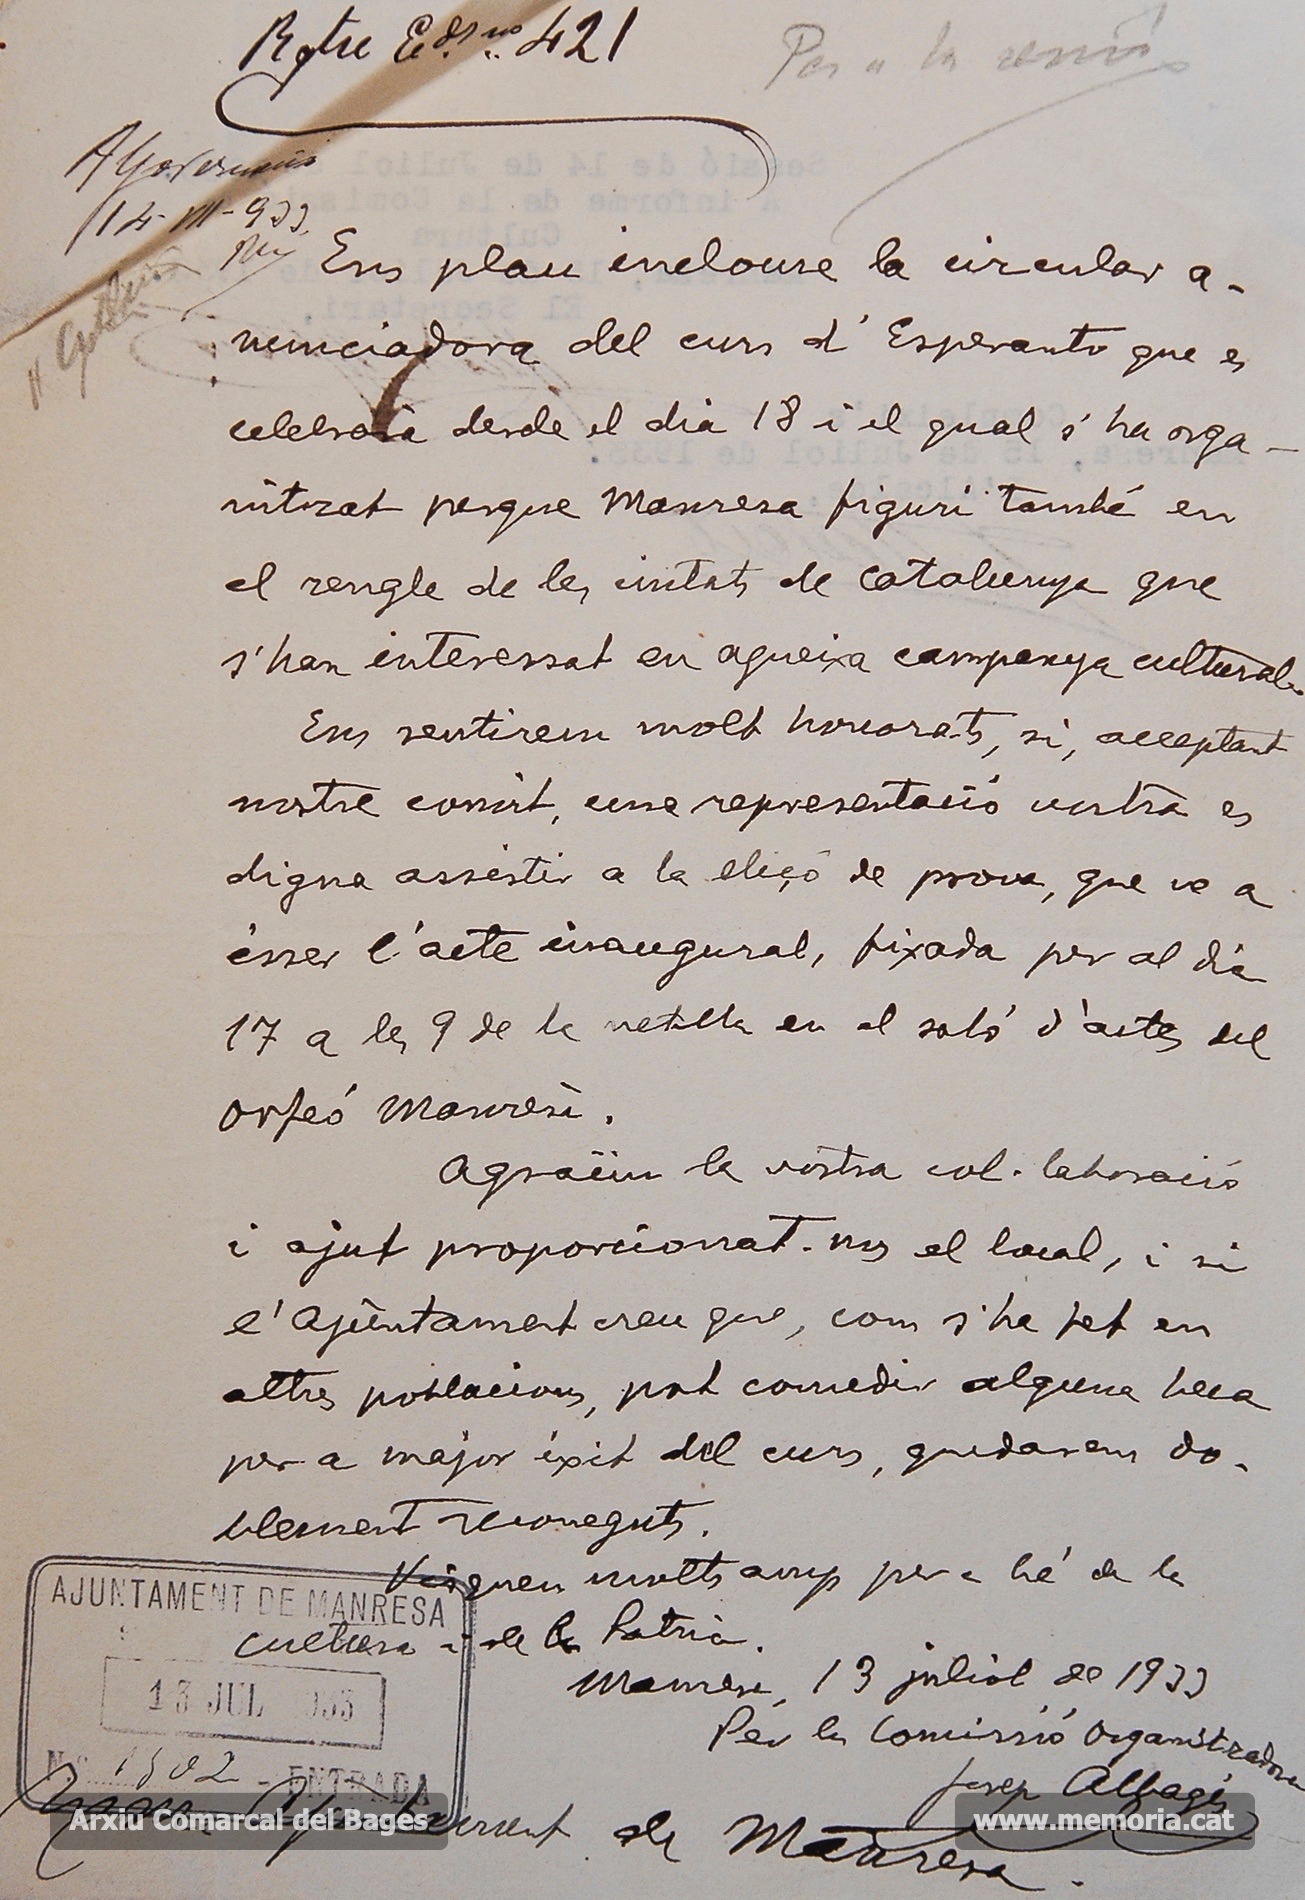 Rgtre Edors no 421
Per a la sessió
A Governació
14-VII-933
A Cultura
Ens plau incloure la circular a-
nunciadora del curs d'Esperanto que es
celebrarà desde el dia 18 i el qual s'ha orga-
nitzat perque Manresa figuri també en
el rengle de les ciutats de Catalunya que
s'han interessat en aqueixa campanya cultural.
Ens sentirem molt honorats, si, acceptant
nostre convit, una representació vostra es
digna assistir a la lliçó de prova, que ve a
ésser l'acte inaugural, fixada per al dia
17 a les 9 de la vetlla en el saló d'actes del
Orfeó Manresà.
Agraïm la vostra col·laboració
i ajut proporcionat-nos el local, i si
l'Ajuntament creu que, com s'ha fet en
altres poblacions, pot concedir alguna beca
per a major éxit del curs, quedarem do-
blement reconeguts.
Visqueu molts anys per a bé de la
cultura i de la Patria.
Manresa, 13 juliol de 1933
Per la Comissió Organitzadora
Josep Alsagés
AJUNTAMENT DE MANRESA
13 JUL 1933
N.º 1502 - ENTRADA
Ajuntament de Manresa.
Arxiu Comarcal del Bages
www.memoria.cat